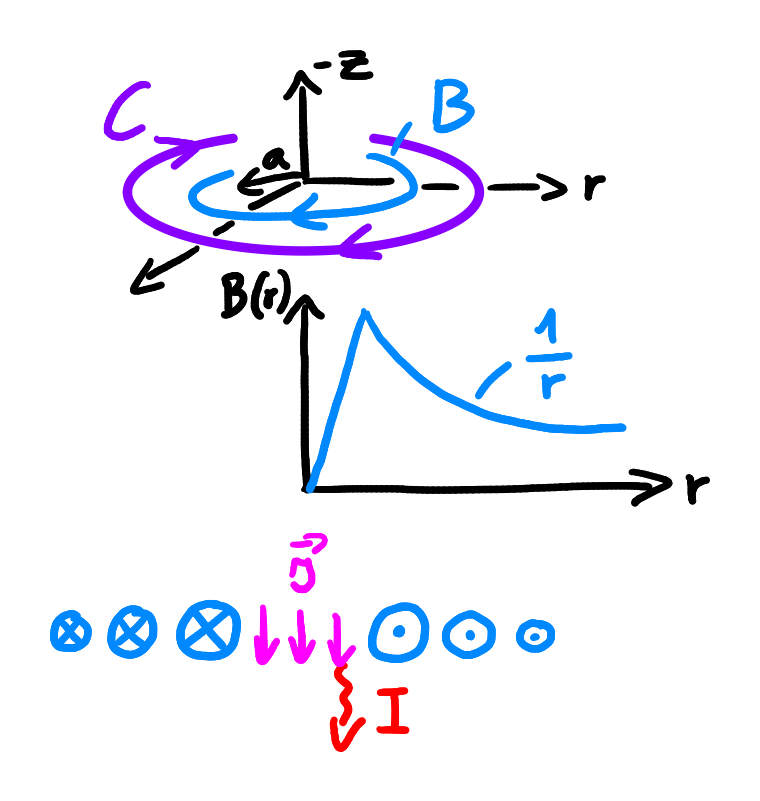 -z
C
B
a
r
B(r)
1
r
r
J
I